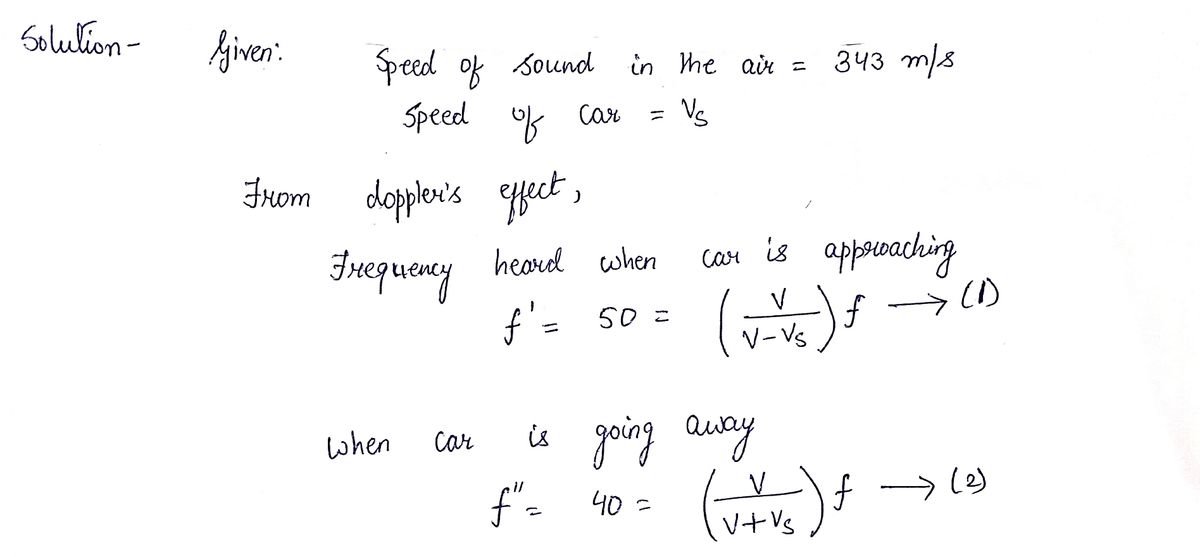 Solution- Given: Speed of sound in the air = 343 m/s
Speed of car = Vs
From doppler's effect,
Frequency heard when car is approaching
f' = 50 = (V/(V-Vs)) f → (1)
when car is going away
f" = 40 = (V/(V+Vs)) f → (2)